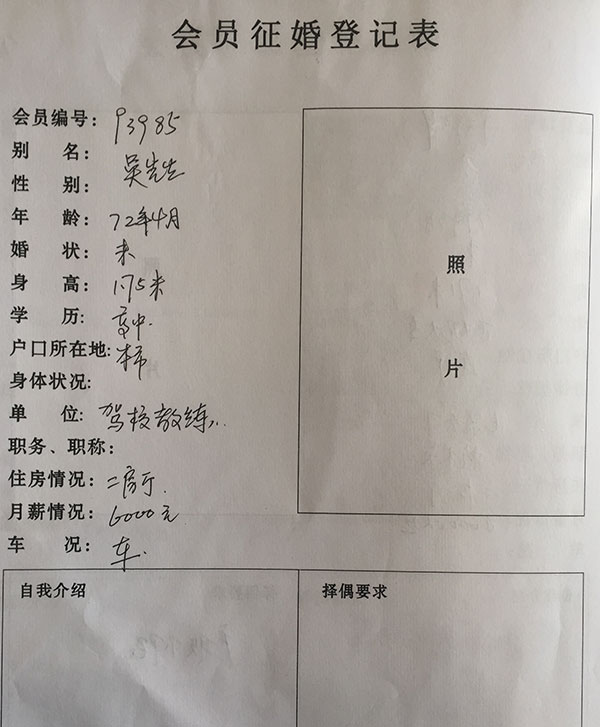 会员征婚登记表
会员编号: 93985
别 名: 吴先生
性 别:
年 龄: 72年4月
婚 状: 未
身 高: 1.75米
学 历: 高中.
户口所在地: 本市
身体状况:
单 位: 驾校教练
职务、职称:
住房情况: 二房厅.
月薪情况: 6000元
车 况: 车.
照
片
自我介绍
择偶要求